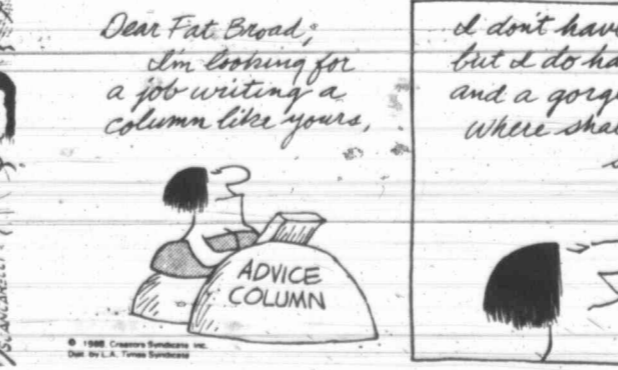 Dear Fat Broad,
I'm looking for
a job writing a
column like yours,
ADVICE
COLUMN
© 1988 Creators Syndicate Inc.
Dist. by L.A. Times Syndicate
I don't have
but I do ha
and a gorg
where sha